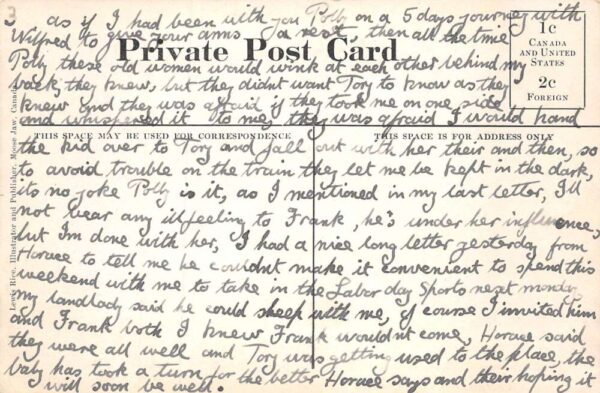 3
as if I had been with you Polly on a 5 days journey with
Wilfred to give your arms a rest, then all the time
Private Post Card
1c
CANADA
AND UNITED
STATES
2c
FOREIGN
Polly these old women would wink at each other behind my
back, they knew but they didnt want Tory to know as they
knew and they was afraid if they took me on one side
and whispered it to me, they was afraid I would hand
THIS SPACE MAY BE USED FOR CORRESPONDENCE
THIS SPACE IS FOR ADDRESS ONLY
the kid over to Tory and fall out with her their and then, so
to avoid trouble on the train they let me be kept in the dark,
its no joke Polly is it, as I mentioned in my last letter, I'll
not bear any illfeeling to Frank, he's under her influence,
but Im done with her, I had a nice long letter yesterday from
Horace to tell me he couldnt make it convenient to spend this
weekend with me to take in the Labor day Sports next monday
my landlady said he could sheep with me, of course I invited him
and Frank both I knew Frank wouldnt come, Horace said
they were all well and Tory was getting used to the place, the
baby has took a turn for the better Horace says and their hoping it
will soon be well.
Lewis Rice, Illustrator and Publisher, Moose Jaw, Canada